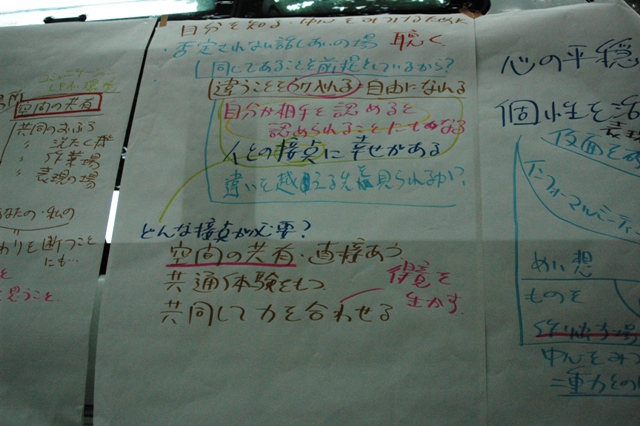 空間の共有
共同のおふろ
〃 洗たく機
〃 仕事場
〃 表現の場
私の
を断つこと
にも…
思うこと
自分を知る
否定されない話しあいの場 聴く
同じであることを前提としているから?
違うことを受け入れる 自由になれる
自分が相手を認めると
認められることにもなる
人との接点に幸せがある
違いを越える先
どんな接点が必要?
空間の共有・直接あう
共通体験をもつ
共同して力を合わせる
得意を
生かす
心の平穏
個性を
仮面を
インフォーマルミーティ
めい想
ものを
作り出す場
中心を
二重力